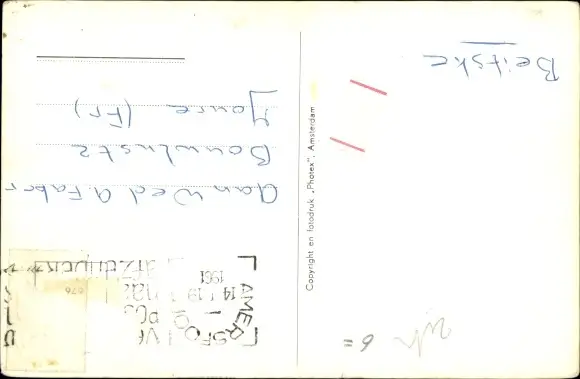 Beitske
Copyright en fotodruk „Photex", Amsterdam
AMERSFOORT
1961
Aan Wed A. Faber
Bouwlust 2
Joure (Fr)
6=